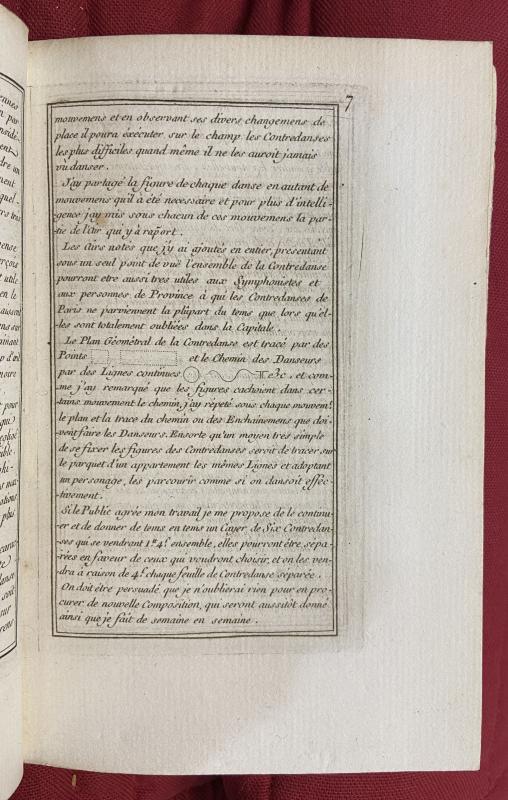 7
mouvemens et en observant ses divers changemens de
place il poura éxécuter sur le champ les Contredanses
les plus difficiles quand même il ne les auroit jamais
vu danser.
J'ay partagé la figure de chaque danse en autant de
mouvemens qu'il a été necessaire et pour plus d'intelli-
gence j'ay mis sous chacun de ces mouvemens la par-
tie de l'air qui y à raport.
Les Airs notés que j'y ai ajoutés en entier, présentant
sous un seul point de vuë l'ensemble de la Contredanse
pourront etre aussi tres utiles aux Symphonistes et
aux personnes de Province à qui les Contredanses de
Paris ne parviennent la plûpart du tems que lors qu'el-
les sont totalement oubliées dans la Capitale.
Le Plan Géométral de la Contredanse est tracé par des
Points et le Chemin des Danseurs
par des Lignes continues &c. et com-
me j'ay remarqué que les figures cachoient dans cer-
tains mouvement le chemin, j'ay répeté sous chaque mouvem.t
le plan et la trace du chemin ou des Enchainemens que doi-
vent faire les Danseurs. Ensorte qu'un moyen tres simple
de se fixer les figures des Contredanses seroit de tracer sur
le parquet d'un appartement les mêmes Lignes et adoptant
un personage, les parcourir comme si on dansoit effec-
tivement.
Si le Public agrée mon travail je me propose de le continu-
er et de donner de tems en tems un Cayer de Six Contredan-
ses qui se vendront 1.tt 4.s ensemble, elles pourront être sépa-
rées en faveur de ceux qui voudront choisir, et on les ven-
dra à raison de 4.s chaque feuille de Contredanse séparée.
On doit être persuadé que je n'oublierai rien pour en pro-
curer de nouvelle Composition, qui seront aussitôt donné
ainsi que je fait de semaine en semaine.